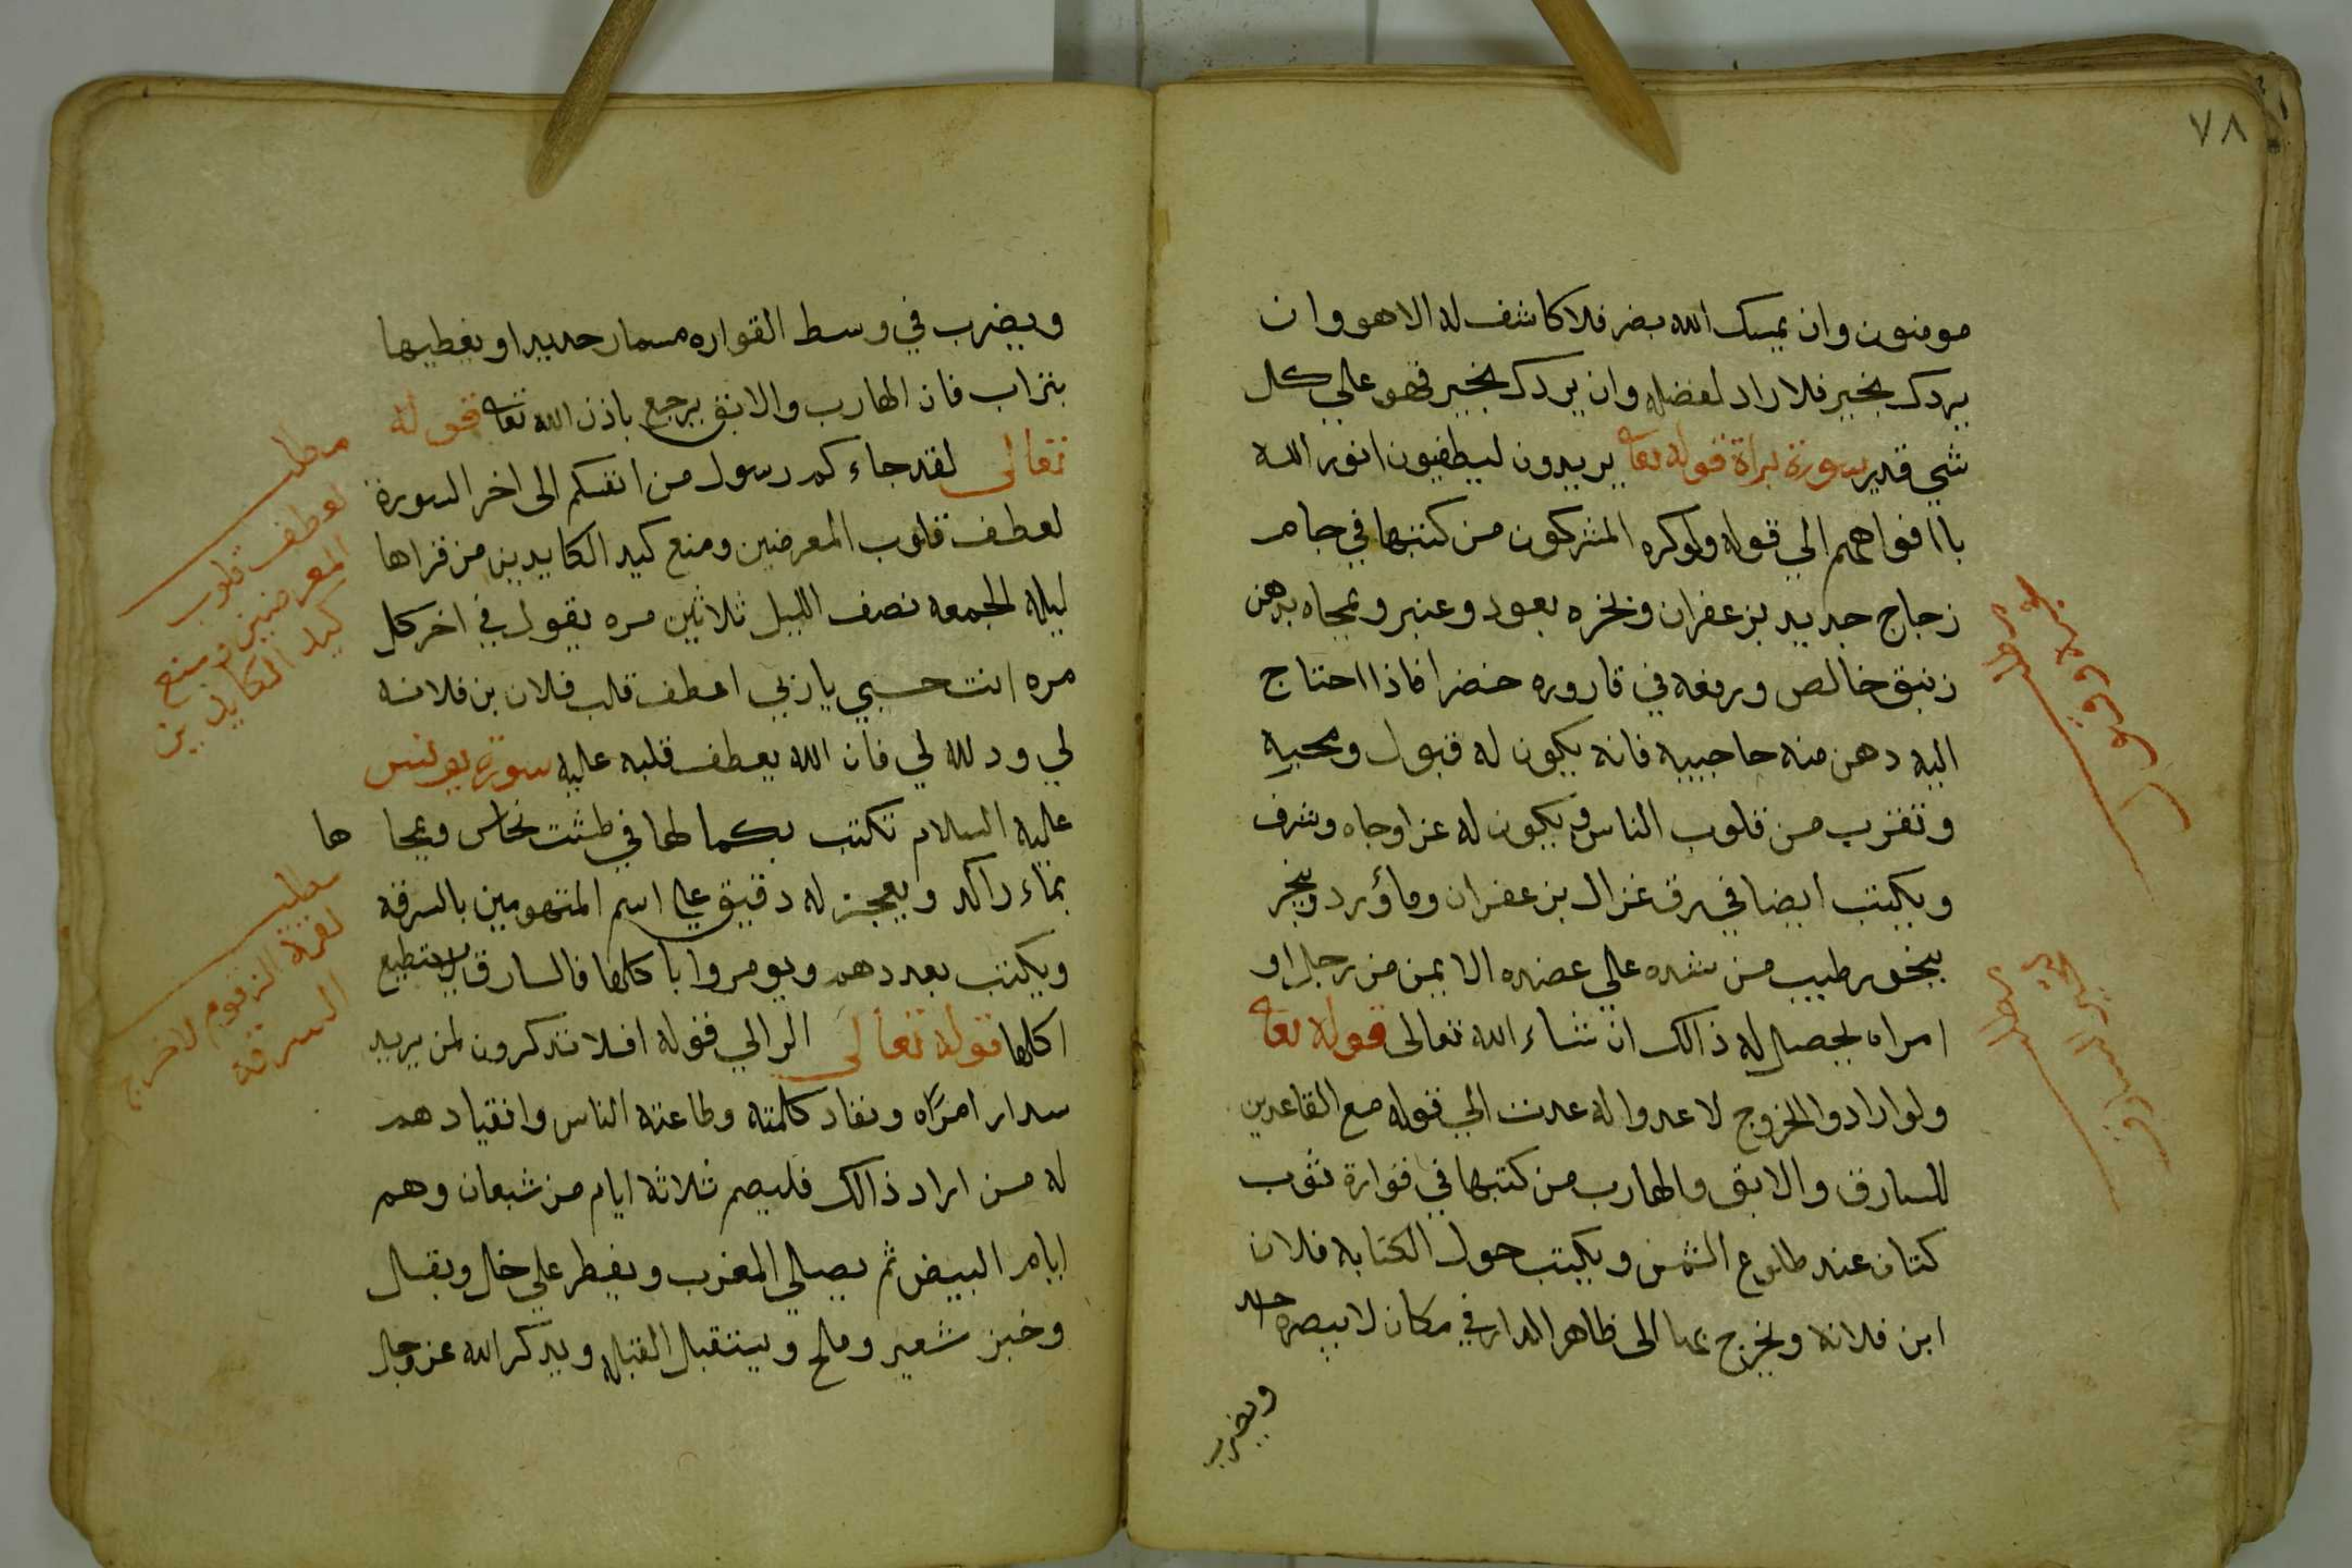 ٧٨
مومنون وان يمسك الله بضر فلا كاشف له الا هو وان
يردك بخير فلا راد لفضله وان يردك بخير فهو علي كل
شي قدير سورة براة قوله تعا يريدون ليطفيون انور الله
باافواههم الي قوله ولوكره المشركون من كتبها في جام
زجاج جديد بزعفران وبخره بعود وعنبر ومجاه بدهن
زنبق خالص ورفعه في قاروره خضرا فاذا احتاج
اليه دهن منه حاجبيه فانه يكون له قبول ومحبه
وتقرب من قلوب الناس ويكون له عزا وجاه وشرف
ويكتب ايضا في رق غزال بزعفران وماؤرد وبخر
ببخور طيب من شده علي عضده الايمن من رجل او
امراه يحصل له ذالك ان شاء الله تعالى قوله تعا
ولو ارادوا الخروج لاعدوا له عدت الي قوله مع القاعدين
للسارق والابق والهارب من كتبها في قوارة ثوب
كتان عند طلوع الشمس ويكتب حول الكتابه فلان
ابن فلانه ويخرج بها الى ظاهر الدار في مكان لا يبصره احد
ويضرب
مطلب
مطلب
ويضرب في وسط القواره مسمار حديدا ويغطيها
بتراب فان الهارب والابق يرجع باذن الله تعا قوله
تعالى لقد جاء كم رسول من انفسكم الى اخر السورة
لعطف قلوب المعرضين ومنع كيد الكايدين من قراها
ليله الجمعه نصف الليل ثلاثين مره يقول في اخر كل
مره انت حسبي يا ربي اعطف قلب فلان بن فلانه
لي وذلله لي فان الله يعطف قلبه عليه سورة يونس
عليه السلام تكتب بكمالها في طشت نحاس ويمحا ها
بماء راكد ويعجن له دقيق علي اسم المتهومين بالسرقه
ويكتب بعددهم ويومروا باكلها فالسارق لا يستطيع
اكلها قوله تعالى الر الي قوله افلا تذكرون لمن يريد
سداد امراه ونفاد كلمته وطاعته الناس وانقيادهم
له من اراد ذالك فليصم ثلاثة ايام من شعبان وهم
ايام البيض ثم يصلي المغرب ويفطر علي خل وبقل
وخبز شعير وملح ويستقبل القبله ويذكر الله عز وجل
مطلب
لعطف قلوب
المعرضين ومنع
كيد الكايدين
مطلب
السرقه